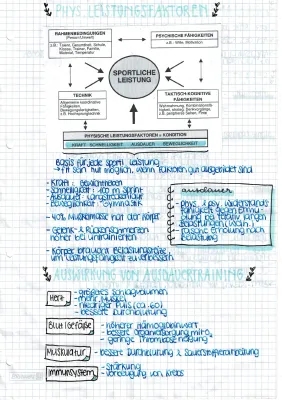 PHYS. LEISTUNGSFAKTOREN
RAHMENBEDINGUNGEN
(Person/Umwelt)
z.B.: Talent, Gesundheit, Schule,
Klasse, Trainer, Familie,
Material, Temperatur
PSYCHISCHE FÄHIGKEITEN
z.B.: Wille, Motivation
SPORTLICHE
LEISTUNG
TECHNIK
Allgemeine koordinative
Fähigkeiten,
Bewegungsfertigkeiten,
z.B.: Hochsprungtechnik
TAKTISCH-KOGNITIVE
FÄHIGKEITEN
Wahrnehmung, Kombinations-
z.B.: peripheres Sehen,
PHYSISCHE LEISTUNGSFAKTOREN = KONDITION
KRAFT SCHNELLIGKEIT AUSDAUER BEWEGLICHKEIT
Basis für jede sportl. Leistung
nur möglich, wenn Faktoren gut ausgebildet sind
Kraft: Gewichtheben
Schnelligkeit: 100 m Sprint
Ausdauer: Langstreckenlauf
Beweglichkeit: Gymnastik
40% Muskelmasse hat der Körper
Gelenk- & Rückenschmerzen
höher bei untrainierten
Körper braucht Belastungsreize
um Leistungsfähigkeit zu verbessern
ausdauer
phys. & psy. Widerstands-
fähigkeit gegen Ermü-
dung bei relativ langen
Belastungen und
rasche Erholung nach
Belastung
AUSWIRKUNG VON AUSDAUERTRAINING
Herz
- größeres Schlagvolumen
- mehr Muskel
- niedriger Puls (ca. 60)
- bessere Durchblutung
Blutgefäße
- höherer Hämoglobinwert
- bessere Organversorgung mit O₂
- geringe Thromboseneigung
Muskulatur
- bessere Durchblutung & Sauerstoffverarbeitung
Immunsystem
- Stärkung
- Vorbeugung von Krebs